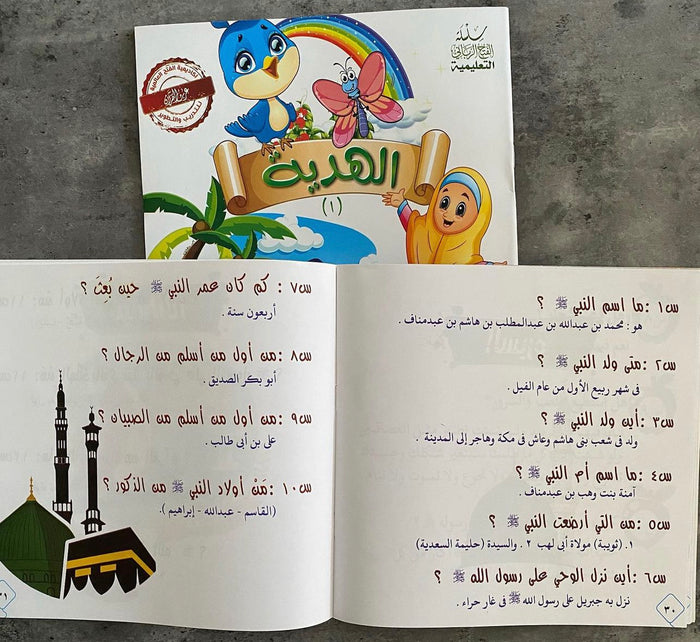 سلسلة
الفتح الرباني
التعليمية
أكاديمية الفتح العالمية
للتدريب والتطوير
الهدية
(١)
س١ : ما اسم النبي ﷺ ؟
هو : محمد بن عبدالله بن عبدالمطلب بن هاشم بن عبدمناف .
س٢ : متى ولد النبي ﷺ ؟
فى شهر ربيع الأول من عام الفيل .
س٣ : أين ولد النبي ﷺ ؟
ولد فى شعب بنى هاشم وعاش فى مكة وهاجر إلى المدينة .
س٤ : ما اسم أم النبي ﷺ ؟
آمنة بنت وهب بن عبدمناف .
س٥ : من التي أرضعت النبي ﷺ ؟
١. (ثويبة) مولاة أبى لهب ٢. والسيدة (حليمة السعدية)
س٦ : أين نزل الوحي على رسول الله ﷺ ؟
نزل به جبريل على رسول الله ﷺ فى غار حراء .
٣٠
س٧ : كم كان عمر النبي ﷺ حين بُعِثَ ؟
أربعون سنة .
س٨ : من أول من أسلم من الرجال ؟
أبو بكر الصديق .
س٩ : من أول من أسلم من الصبيان ؟
على بن أبى طالب .
س١٠ : مَنْ أولاد النبي ﷺ من الذكور ؟
(القاسم - عبدالله - إبراهيم ).